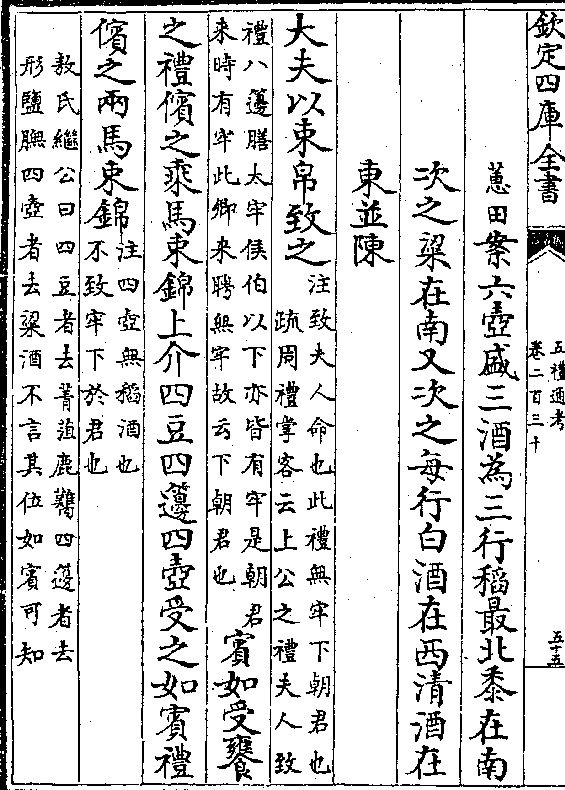 欽定四庫全書
五禮通考
卷二百三十
五十五
蕙田案六壺盛三酒為三行稻最北黍在南
次之粱在南又次之每行白酒在西清酒在
東並陳
大夫以束帛致之
注致夫人命也此禮無牢下朝君也
疏周禮掌客云上公之禮夫人致
禮八籩膳太牢侯伯以下亦皆有牢是朝君
來時有牢此卿來聘無牢故云下朝君也
賓如受饔
之禮儐之乘馬束錦上介四豆四籩四壺受之如賓禮
儐之兩馬束錦
注四壺無稻酒也
不致牢下於君也
敖氏繼公曰四豆者去菁菹鹿臡四籩者去
形鹽膴四壺者去粱酒不言其位如賓可知